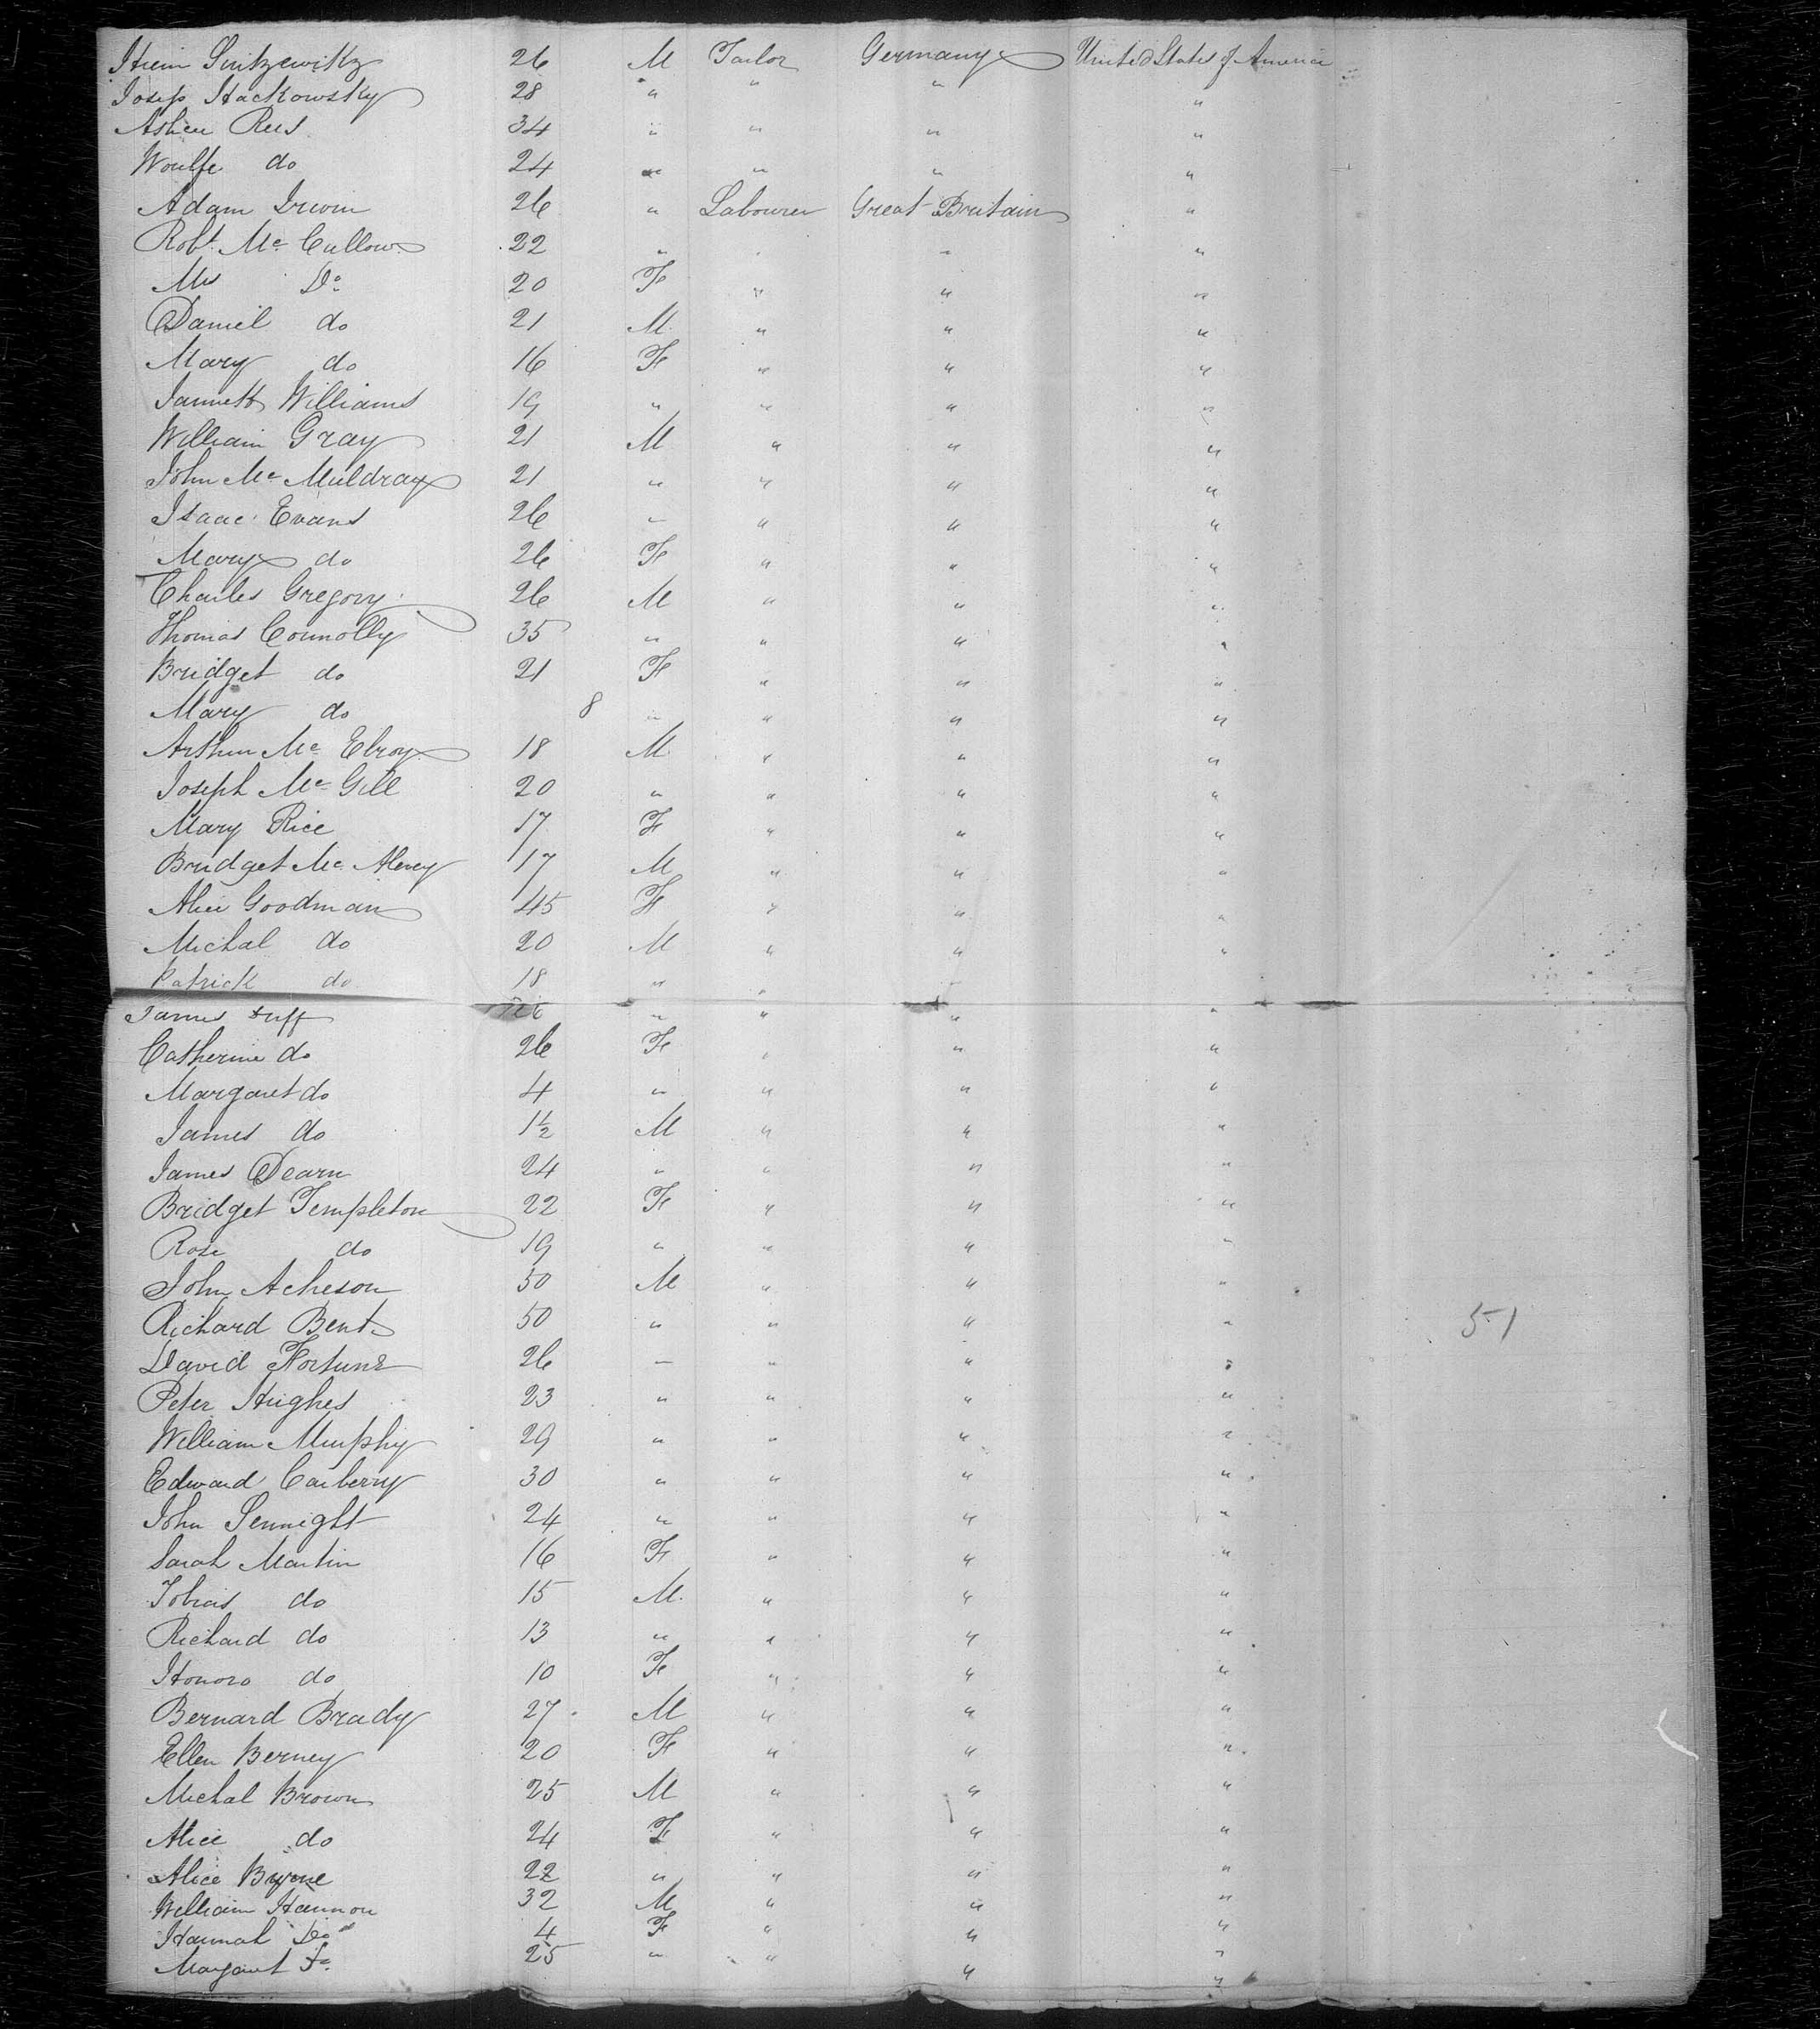 Hiem Sintzewitz 26 M Tailor Germany United States of America
Josep Hackowsky 28 " " " "
Asheu Rees 34 " " " "
Woulfe do 24 " " " "
Adam Irwin 26 " Labourer Great Britain "
Robt. Mc Cullow 22 " " " "
Mrs Do 20 F " " "
Daniel do 21 M " " "
Mary do 16 F " " "
Jannett Williams 19 " " " "
William Gray 21 M " " "
John Mc Muldray 21 " " " "
Isaac Evans 26 " " " "
Mary do 26 F " " "
Charles Gregory 26 M " " "
Thomas Connolly 35 " " " "
Bridget do 21 F " " "
Mary do 8 " " " "
Arthur Mc Elroy 18 M " " "
Joseph Mc Gill 20 " " " "
Mary Rice 17 F " " "
Bridget Mc Alevey 17 M " " "
Alice Goodman 45 F " " "
Michal do 20 M " " "
Patrick do 18 " " " "
James Duff " " " "
Catherine do 26 F " " "
Margaret do 4 " " " "
James do 1½ M " " "
James Dearn 24 " " " "
Bridget Templeton 22 F " " "
Rose do 19 " " " "
John Acheson 50 M " " "
Richard Bent 50 " " " "
51
David Fortune 26 " " " "
Peter Hughes 23 " " " "
William Murphy 29 " " " "
Edward Carberry 30 " " " "
John Sennight 24 " " " "
Sarah Martin 16 F " " "
Tobias do 15 M " " "
Richard do 13 " " " "
Honora do 10 F " " "
Bernard Brady 27 M " " "
Ellen Berney 20 F " " "
Michal Brown 25 M " " "
Alice do 24 F " " "
Alice Byrne 22 " " " "
William Hannon 32 M " " "
Hannah Do 4 F " " "
Margaret Do 25 " " " "